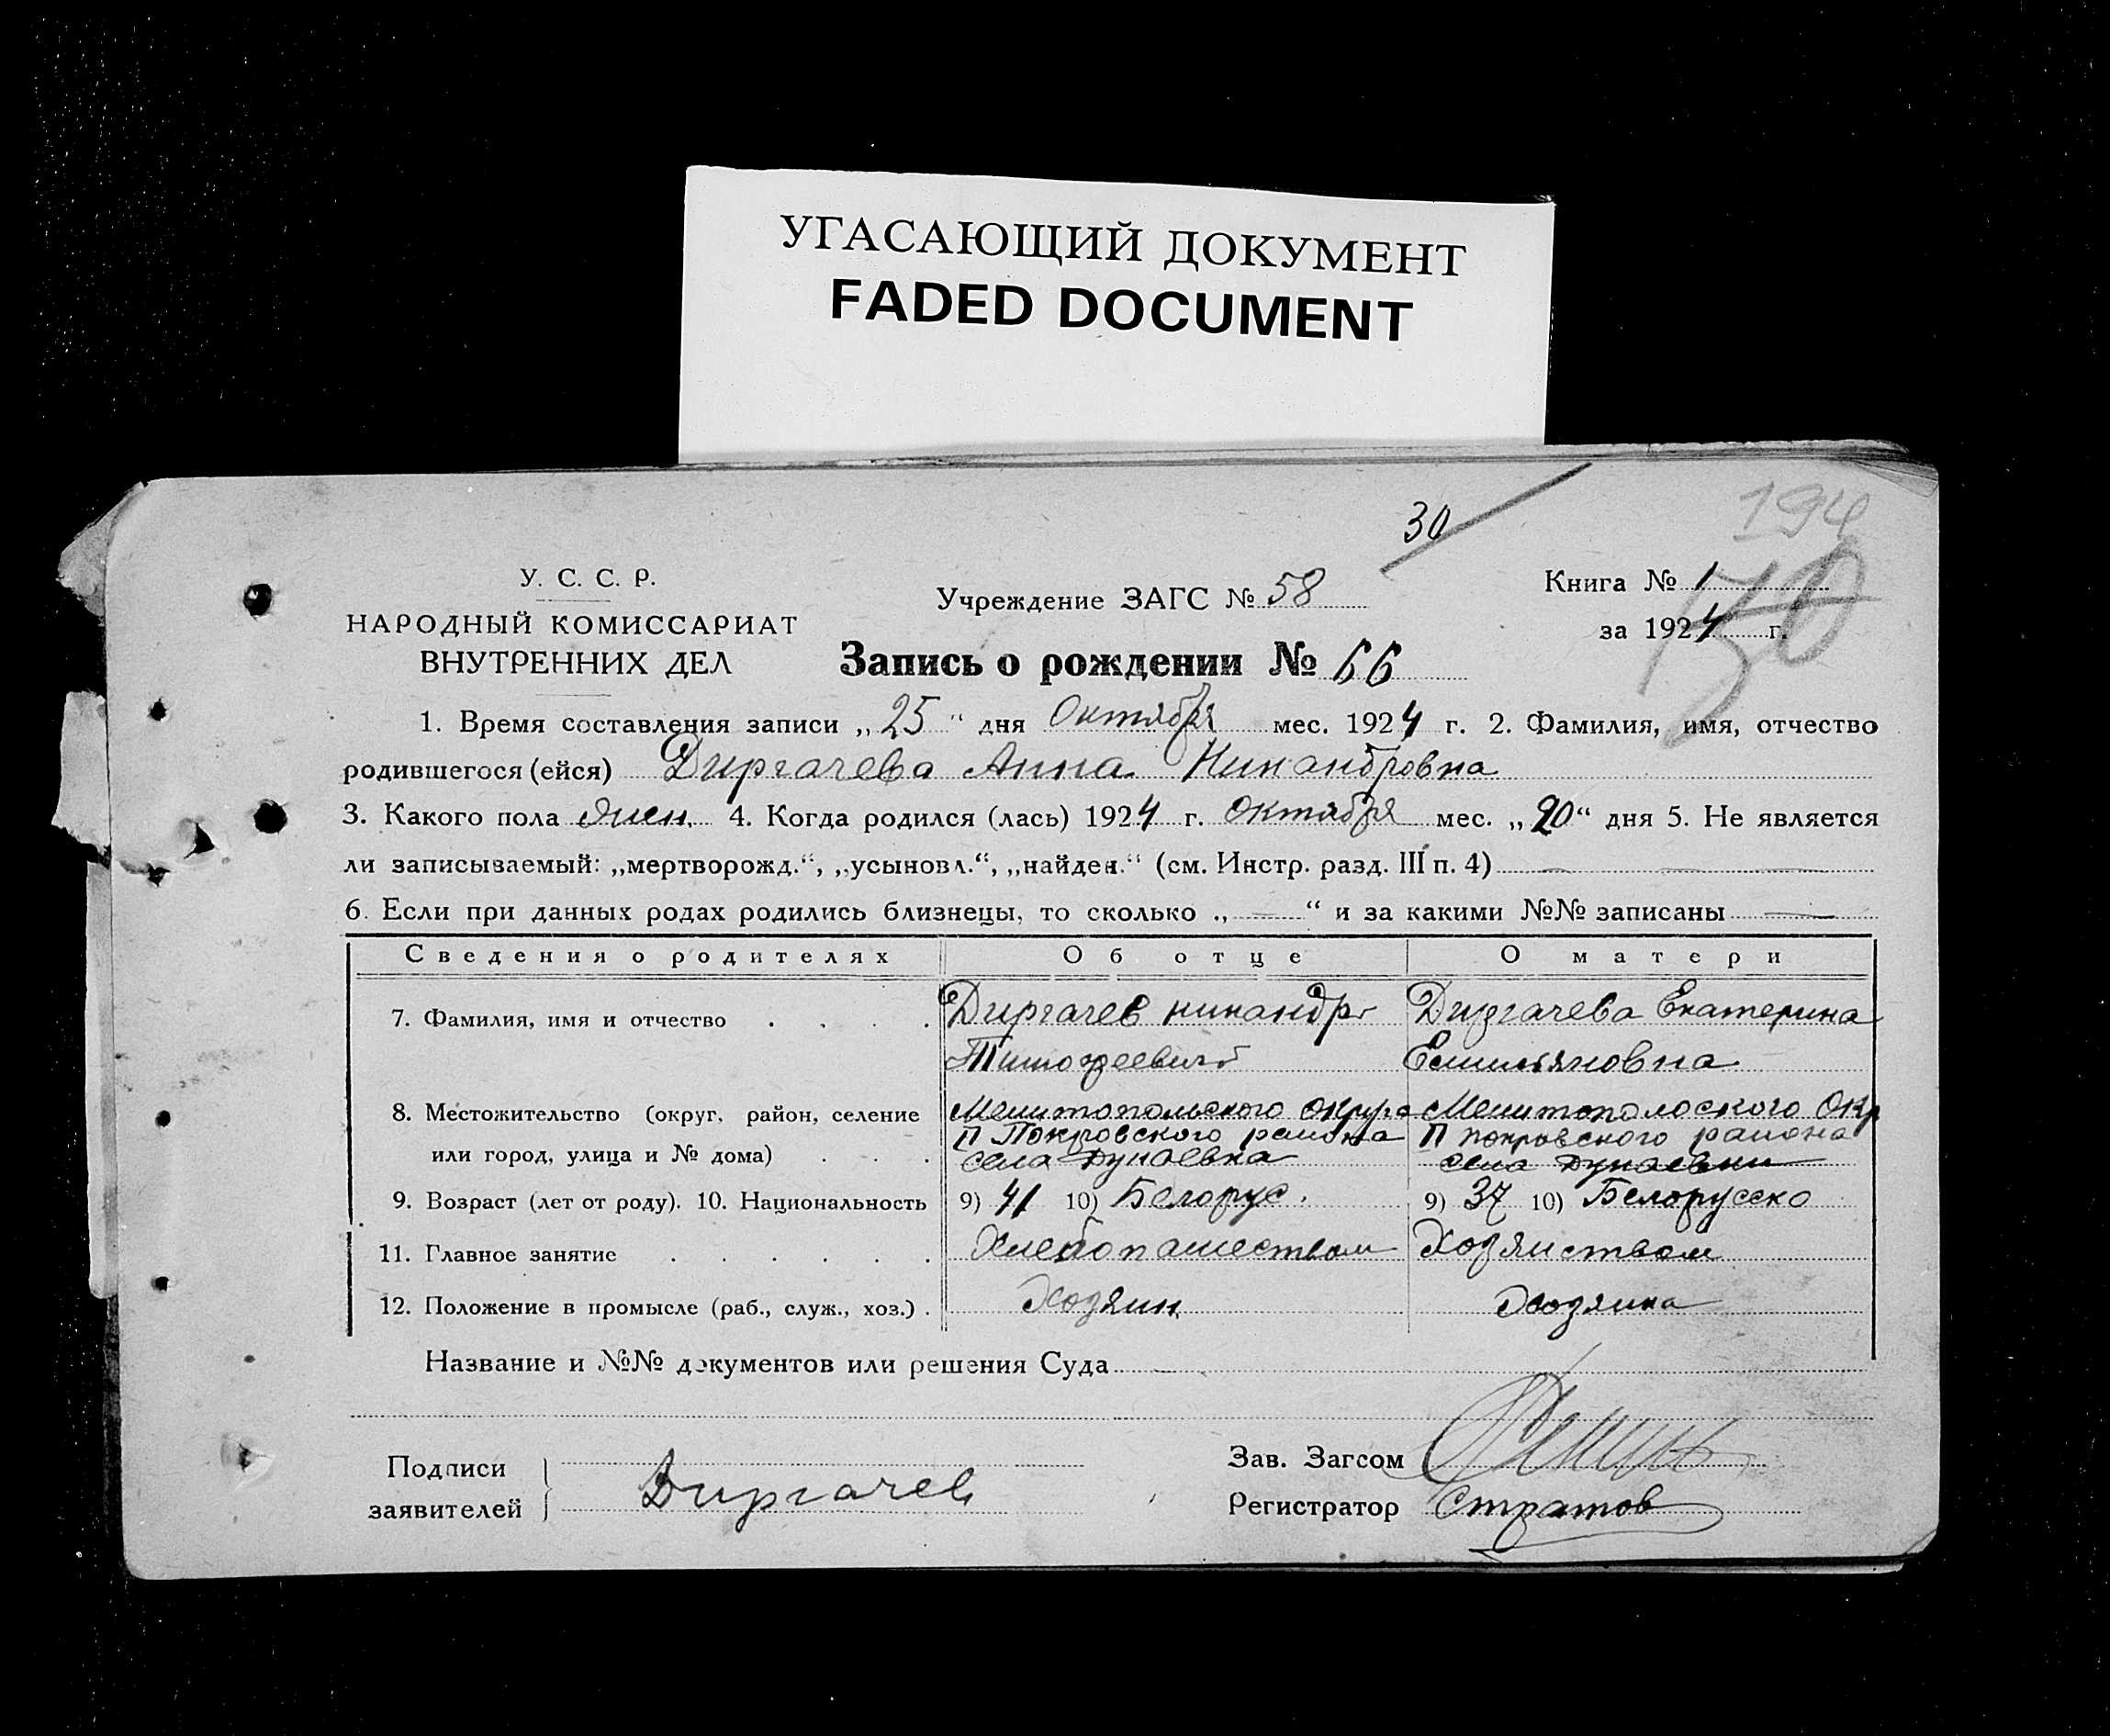 УГАСАЮЩИЙ ДОКУМЕНТ
FADED DOCUMENT
30
194
У. С. С. Р.
НАРОДНЫЙ КОМИССАРИАТ
ВНУТРЕННИХ ДЕЛ
Учреждение ЗАГС № 58
Книга № 1
за 1924 г.
Запись о рождении № 66
1. Время составления записи „25“ дня Октября мес. 1924 г. 2. Фамилия, имя, отчество
родившегося (ейся) Диргачева Анна Никандровна
3. Какого пола жен. 4. Когда родился (лась) 1924 г. Октября мес. „20“ дня 5. Не является
ли записываемый: „мертворожд.“, „усыновл.“, „найден.“ (см. Инстр. разд. III п. 4) —
6. Если при данных родах родились близнецы, то сколько „—“ и за какими №№ записаны —
Сведения о родителях Об отце О матери
7. Фамилия, имя и отчество . . . . Диргачев никандр Диргачева Екатерина
Тимофеевич Емильяновна
8. Местожительство (округ, район, селение Мелитопольского округа Мелитополоского Окр
П Покровского района П покровского района
или город, улица и № дома) . . . села Дунаевка села Дунаевки
9. Возраст (лет от роду). 10. Национальность 9) 41 10) Белорус. 9) 37 10) Белорусско
11. Главное занятие . . . . . . Хлебопашеством Хозяиством
12. Положение в промысле (раб., служ., хоз.) . Хозяин Хозяика
Название и №№ документов или решения Суда —
Подписи
заявителей
Диргачев
Зав. Загсом
Регистратор Стратов